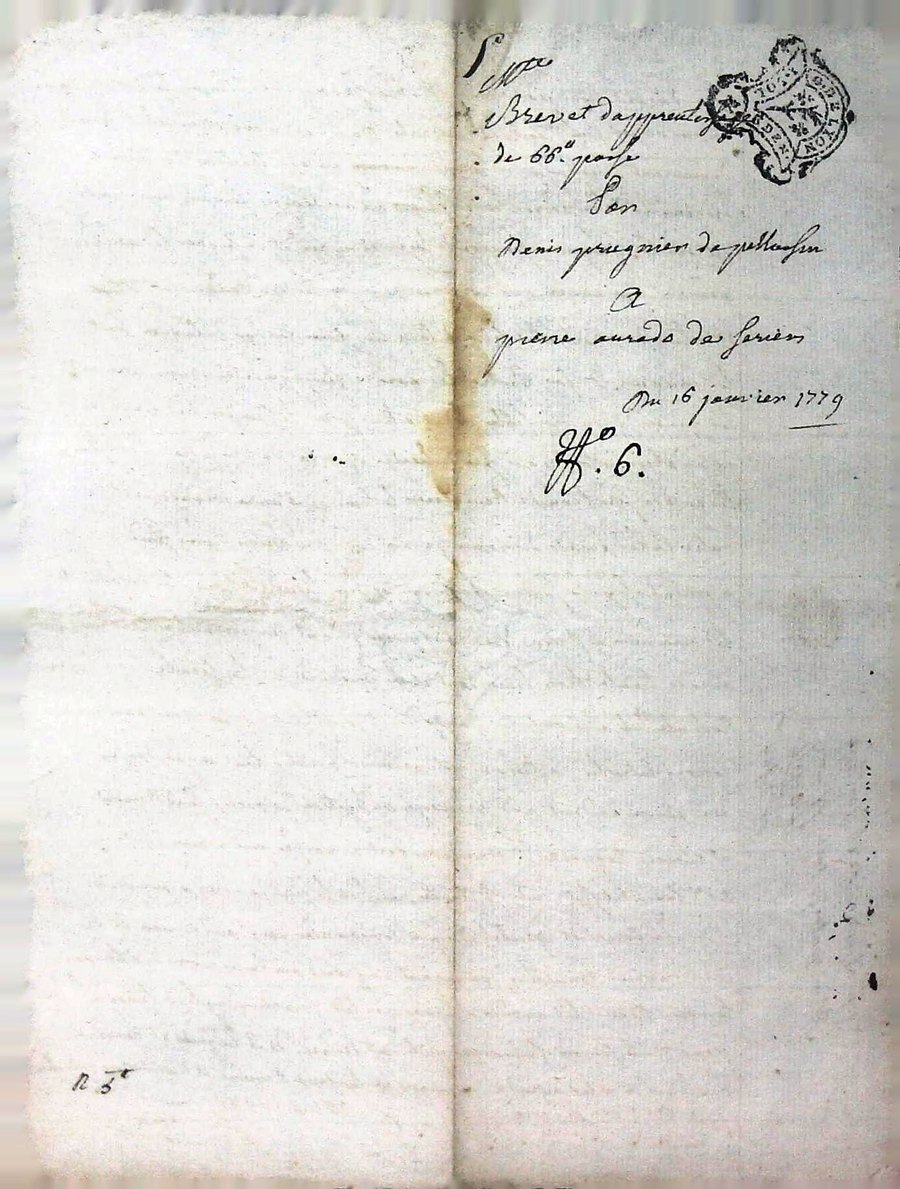 Mte
Brevet dapprentissage
de 66# passé
Par
Denis prugnier de pellussin
A
pierre aurado de serien
Du 16 janvier 1779
No. 6.
G. DE LYON